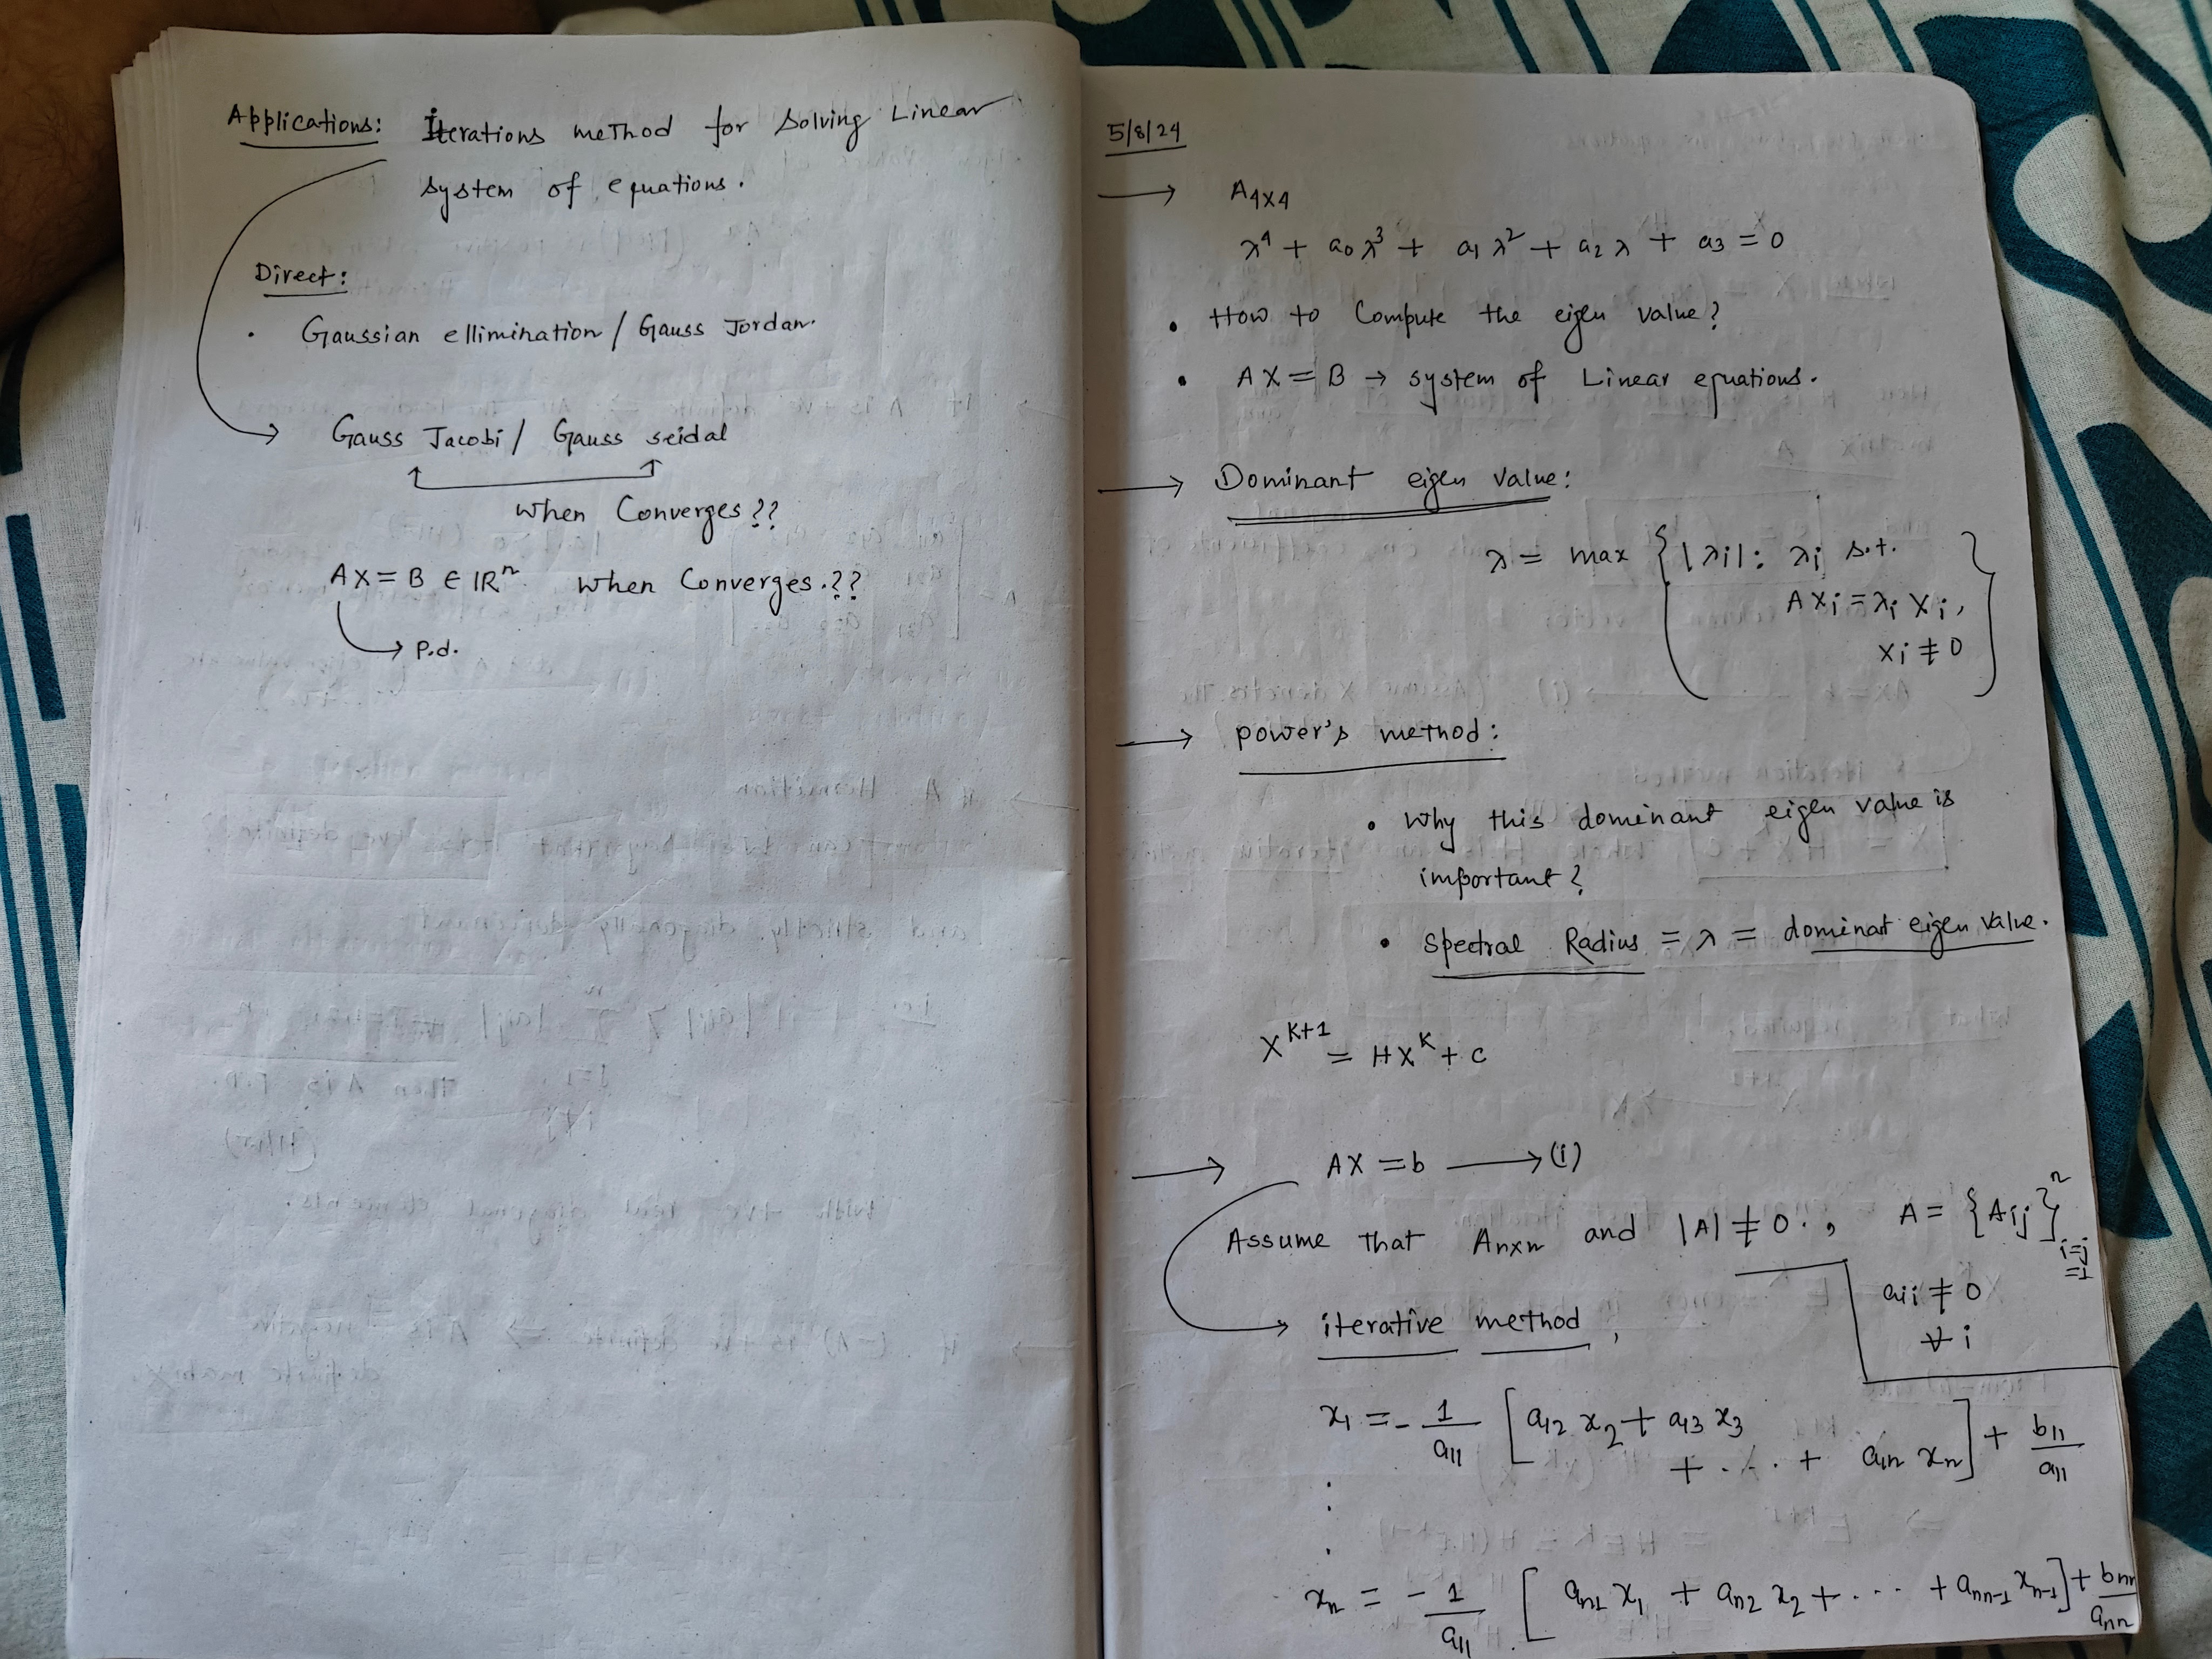 Applications: Iterations method for solving Linear
system of equations.
Direct:
· Gaussian ellimination / Gauss Jordan.
Gauss Jacobi / Gauss seidal
when Converges ??
AX = B ∈ IRⁿ when Converges.??
P.d.
5/8/24
→ A4x4
λ⁴ + a₀λ³ + a₁λ² + a₂λ + a₃ = 0
• How to Compute the eigen value?
• AX = B → system of Linear equations.
→ Dominant eigen value:
λ = max { |λi| : λi s.t.
AXi = λi Xi,
Xi ≠ 0 }
→ power's method:
• Why this dominant eigen value is
important?
• Spectral Radius = λ = dominant eigen value.
X^{K+1} = HX^K + C
→ AX = b ⟶ (i)
Assume that Anxn and |A| ≠ 0 . , A = {Aij}ⁿ i=j=1
aii ≠ 0
∀ i
iterative method,
x₁ = - 1/a₁₁ [a₁₂ x₂ + a₁₃ x₃
+ . . . + a₁n xn] + b₁₁/a₁₁
⋮
xn = - 1/a₁₁ [an1 x₁ + an2 x₂ + . . . + ann-1 xn-1] + bnn/ann